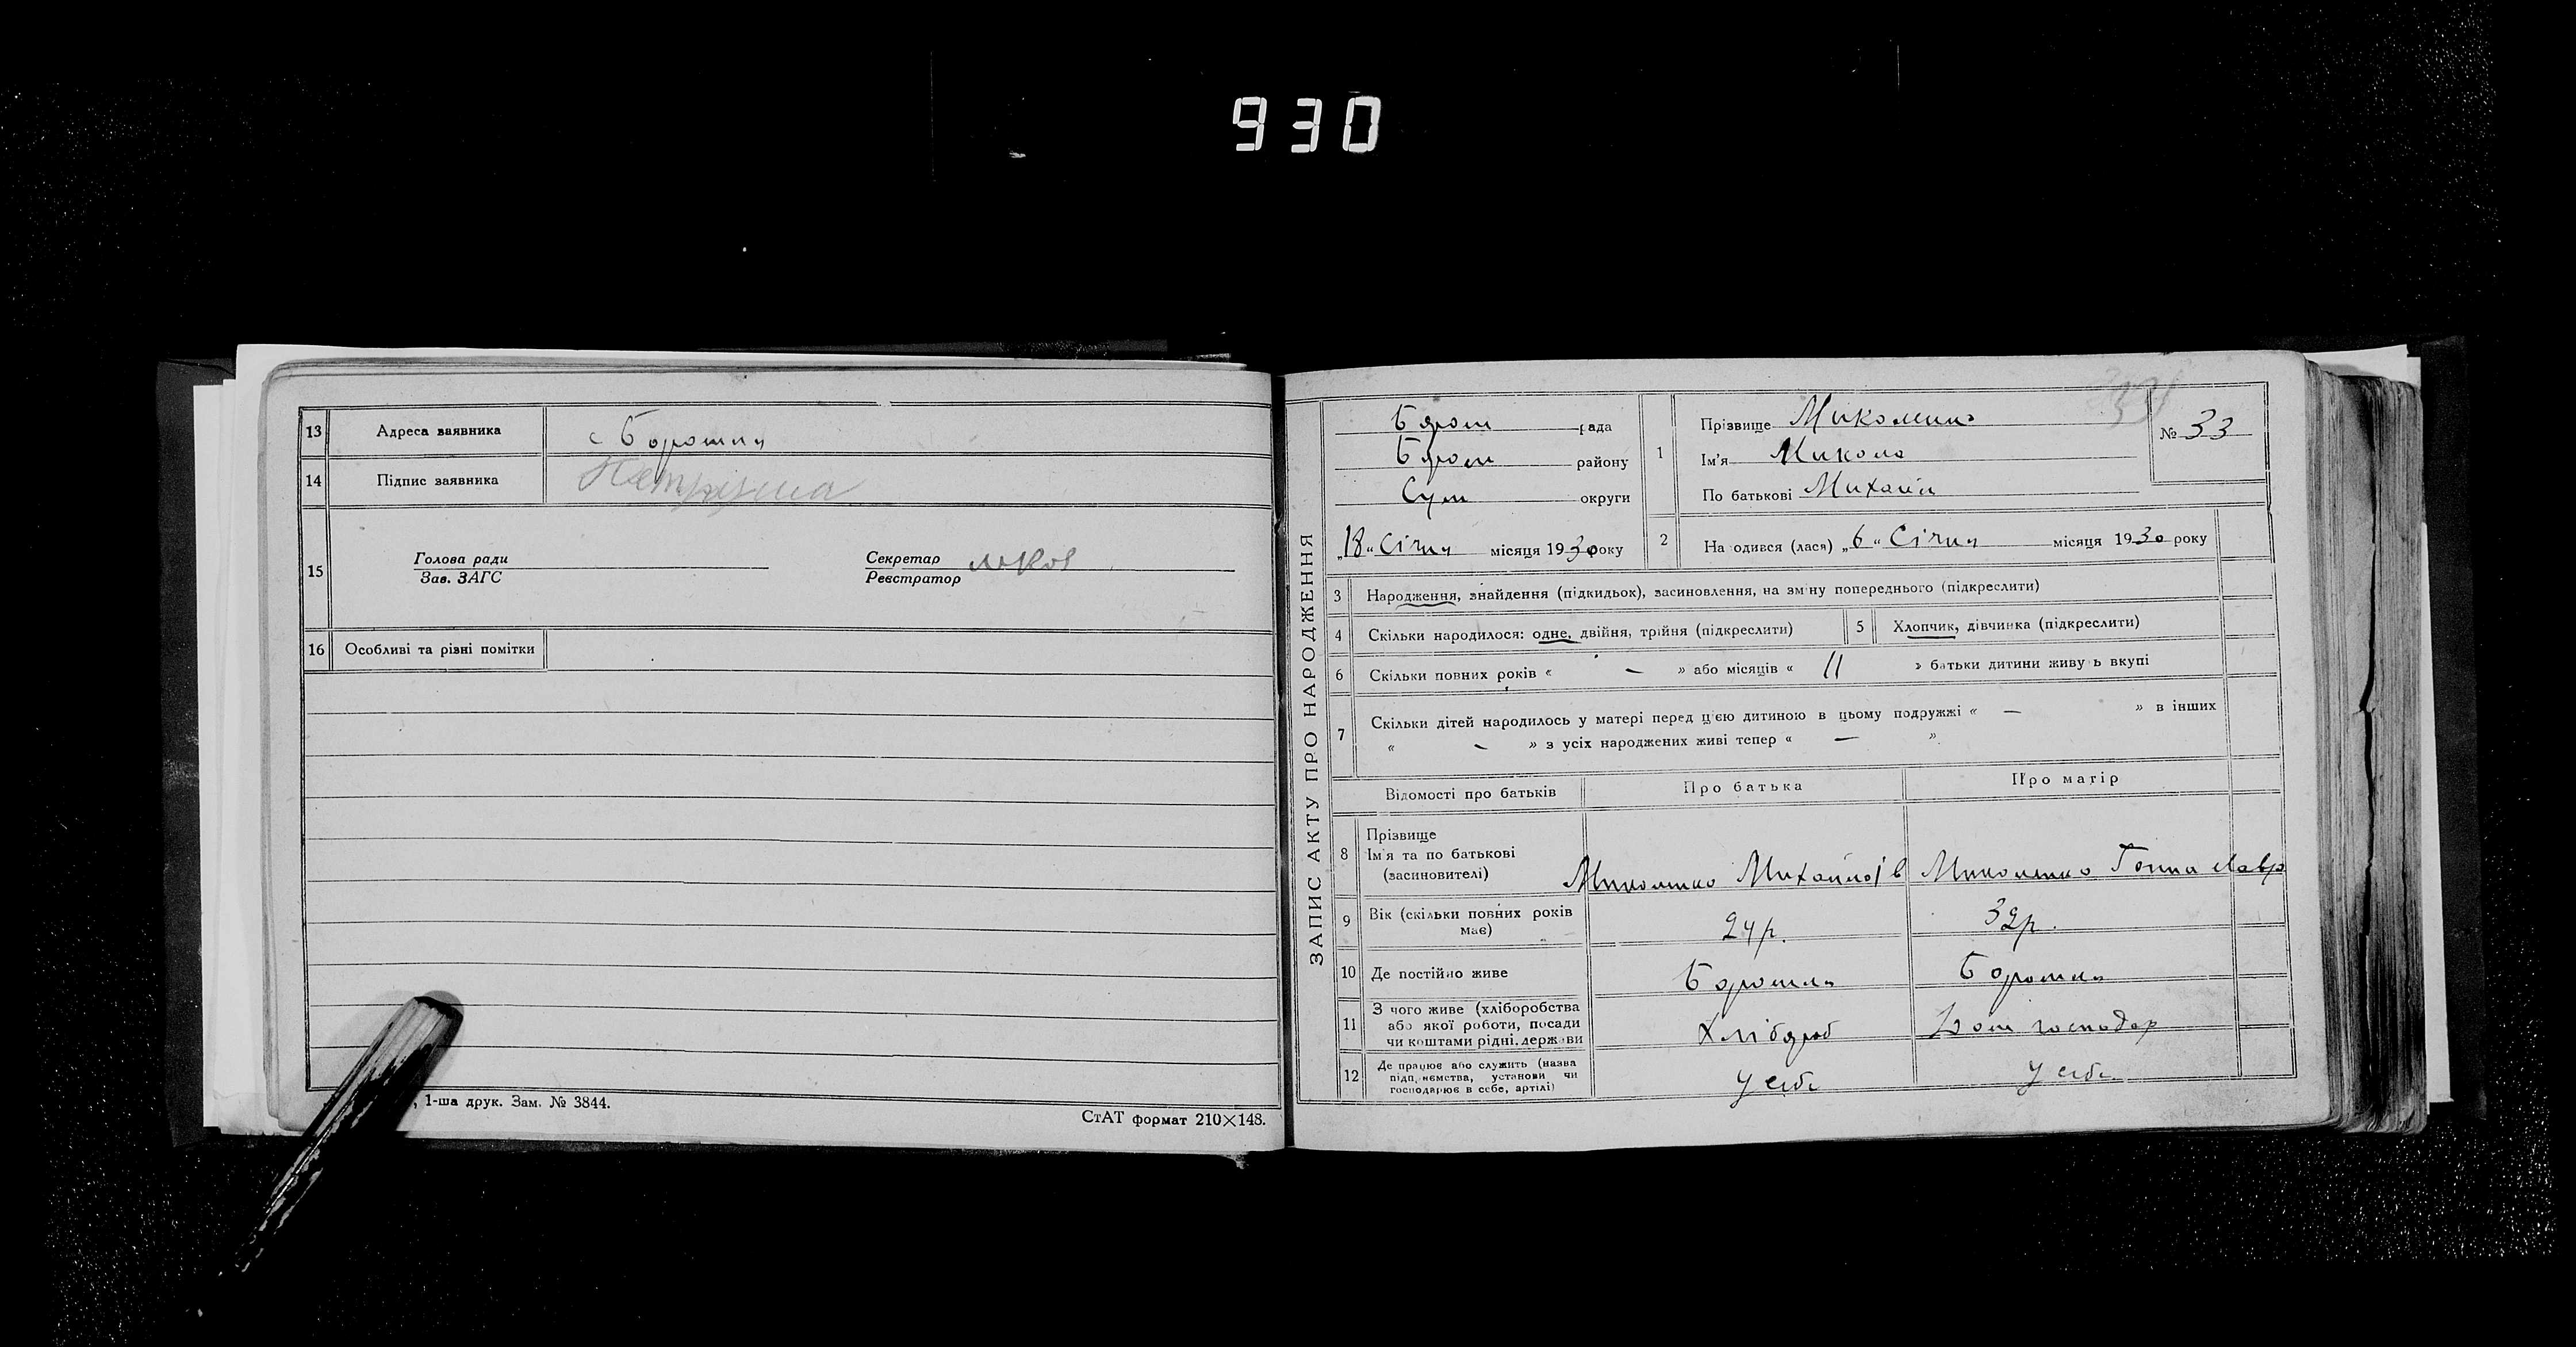 930
13 Адреса заявника с Боромля
14 Підпис заявника
15 Голова ради
Зав. ЗАГС
Секретар
Реєстратор
16 Особливі та різні помітки
, 1-ша друк. Зам. № 3844.
СтАТ формат 210×148.
ЗАПИС АКТУ ПРО НАРОДЖЕННЯ
Бором рада
Бором району
Сум округи
„18“ Січня місяця 1930 року
1 Прізвище
Ім'я Микола
По батькові Михайл
№ 33
2 На одився (лася) „6“ Січня місяця 1930 року
3 Народження, знайдення (підкидьок), засиновлення, на зміну попереднього (підкреслити)
4 Скільки народилося: одне, двійня, трійня (підкреслити)
5 Хлопчик, дівчинка (підкреслити)
6 Скільки повних років « — » або місяців « 11 » батьки дитини живуть вкупі
7 Скільки дітей народилось у матері перед цією дитиною в цьому подружжі « — » в інших
« — » з усіх народжених живі тепер « — »
Відомості про батьків Про батька Про матір
8 Прізвище
Ім'я та по батькові
(засновителі)
Ганна Лавр
9 Вік (скільки повних років
має)
24 р. 32 р.
10 Де постійно живе Боромля Боромля
11 З чого живе (хліборобства
або якої роботи, посади
чи коштами рідні, держави
Хлібороб Дом господар
12 Де працює або служить (назва
підприємства, установи чи
господарює в себе, артілі)
У себе У себе